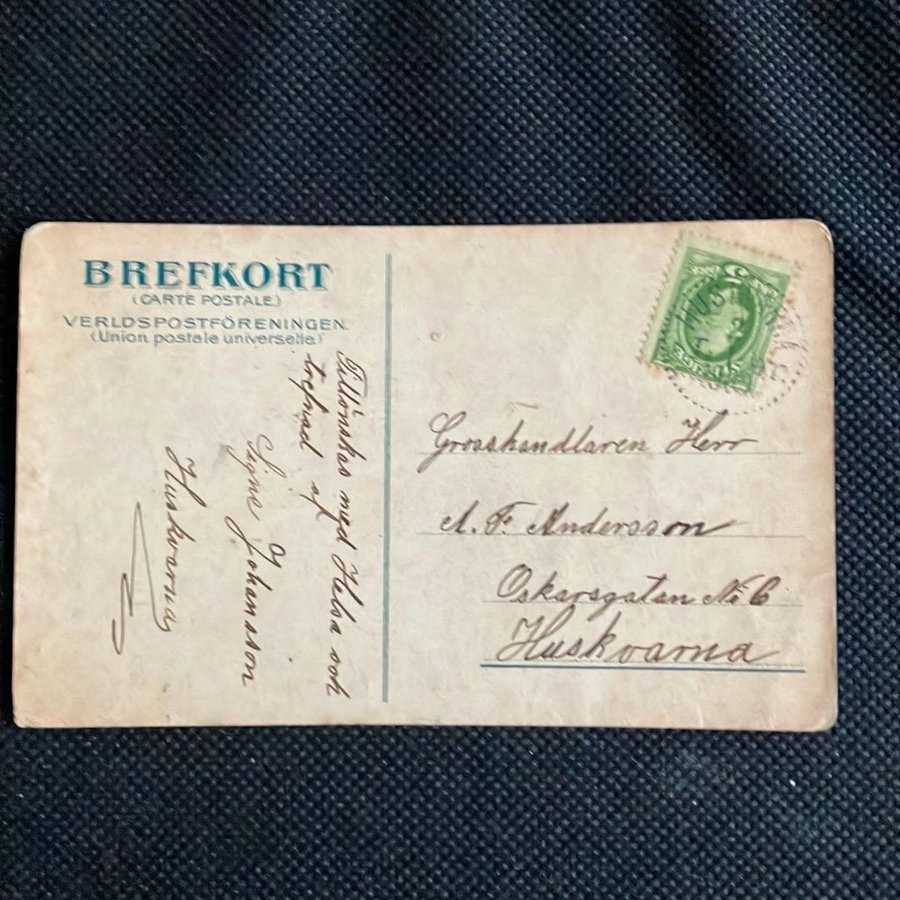 BREFKORT
(CARTE POSTALE.)
VERLDSPOSTFÖRENINGEN.
(Union postale universelle.)
Tillönskas med Helsa och
trefnad af
Signe Johansson
Huskvarna
Grosshandlaren Herr
A. F. Andersson
Oskarsgatan No 6
Huskvarna
5